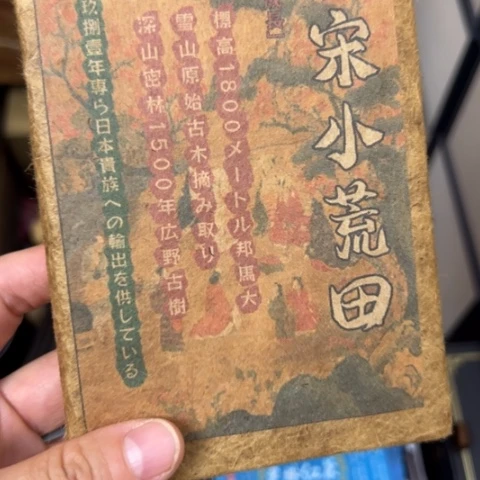 宋小荒田
標高1800メートル邦馬大
雪山原始古木摘み取り
深山密林1500年広野古樹
玖捌壹年専ら日本貴族への輸出を供している